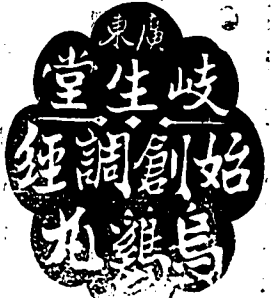 廣東
岐生堂
始創調經
烏鷄丸